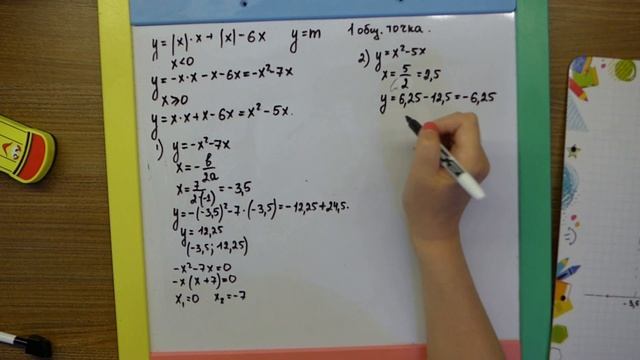 y = |x|·x + |x| - 6x    y = m    1 общ. точка.
x < 0
y = -x·x - x - 6x = -x² - 7x
x ⩾ 0
y = x·x + x - 6x = x² - 5x.
1) y = -x² - 7x
x = - b/2a
x = 7/2·(-1) = -3,5
y = -(-3,5)² - 7·(-3,5) = -12,25 + 24,5.
y = 12,25
(-3,5; 12,25)
-x² - 7x = 0
-x(x + 7) = 0
x₁ = 0    x₂ = -7
2) y = x² - 5x
x = 5/2 = 2,5
y = 6,25 - 12,5 = -6,25
-3,5